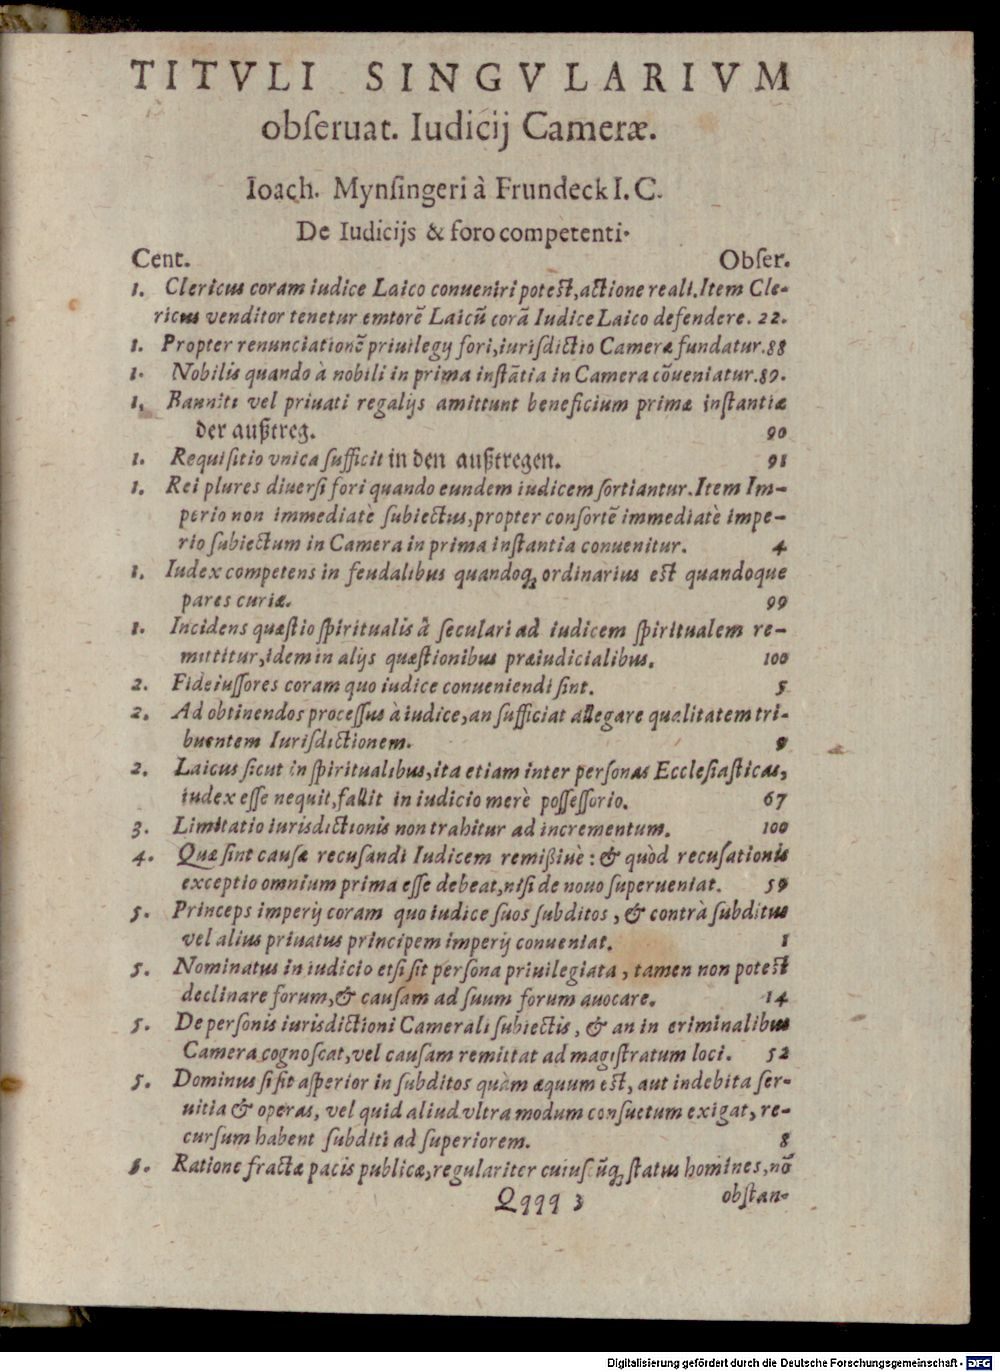 TITVLI SINGVLARIVM
obſeruat. Iudicij Cameræ.
Ioach. Mynſingeri à Frundeck I. C.
De Iudicijs & foro competenti.
Cent. Obſer.
1. Clericus coram iudice Laico conueniri potest, actione reali. Item Cle-
ricus venditor tenetur emtorē Laicū corā Iudice Laico defendere. 22.
1. Propter renunciationē priuilegij fori, iurisdictio Cameræ fundatur. 88
1. Nobilis quando à nobili in prima inſtātia in Camera cōueniatur. 89.
1. Banniti vel priuati regalijs amittunt beneficium primæ inſtantiæ
der außtreg. 90
1. Requiſitio vnica ſufficit in den außtregen. 91
1. Rei plures diuerſi fori quando eundem iudicem ſortiantur. Item Im-
perio non immediatè ſubiectus, propter conſortē immediatè impe-
rio ſubiectum in Camera in prima inſtantia conuenitur. 4
1. Iudex competens in feudalibus quandoq; ordinarius est quandoque
pares curiæ. 99
1. Incidens quæſtio ſpiritualis à ſeculari ad iudicem ſpiritualem re-
mittitur, idem in alijs quæſtionibus præiudicialibus. 100
2. Fideiuſſores coram quo iudice conueniendi ſint. 5
2. Ad obtinendos proceſſus à iudice, an ſufficiat allegare qualitatem tri-
buentem Iurisdictionem. 9
2. Laicus ſicut in ſpiritualibus, ita etiam inter perſonas Eccleſiaſticas,
iudex eſſe nequit, fallit in iudicio merè poſſeſſorio. 67
3. Limitatio iurisdictionis non trahitur ad incrementum. 100
4. Quæ ſint cauſæ recuſandi Iudicem remißiuè: & quòd recuſationis
exceptio omnium prima eſſe debeat, niſi de nouo ſuperueniat. 59
5. Princeps imperij coram quo iudice ſuos ſubditos, & contrà ſubditus
vel alius priuatus principem imperij conueniat. 1
5. Nominatus in iudicio etſi ſit perſona priuilegiata, tamen non potest
declinare forum, & cauſam ad ſuum forum auocare. 14
5. De perſonis iurisdictioni Camerali ſubiectis, & an in criminalibus
Camera cognoſcat, vel cauſam remittat ad magiſtratum loci. 52
5. Dominus ſi ſit aſperior in ſubditos quàm æquum est, aut indebita ſer-
uitia & operas, vel quid aliud vltra modum conſuetum exigat, re-
curſum habent ſubditi ad ſuperiorem. 8
6. Ratione fractæ pacis publicæ, regulariter cuiuscūq; ſtatus homines, nō
Qqqq 3 obſtan-
Digitalisierung gefördert durch die Deutsche Forschungsgemeinschaft - DFG